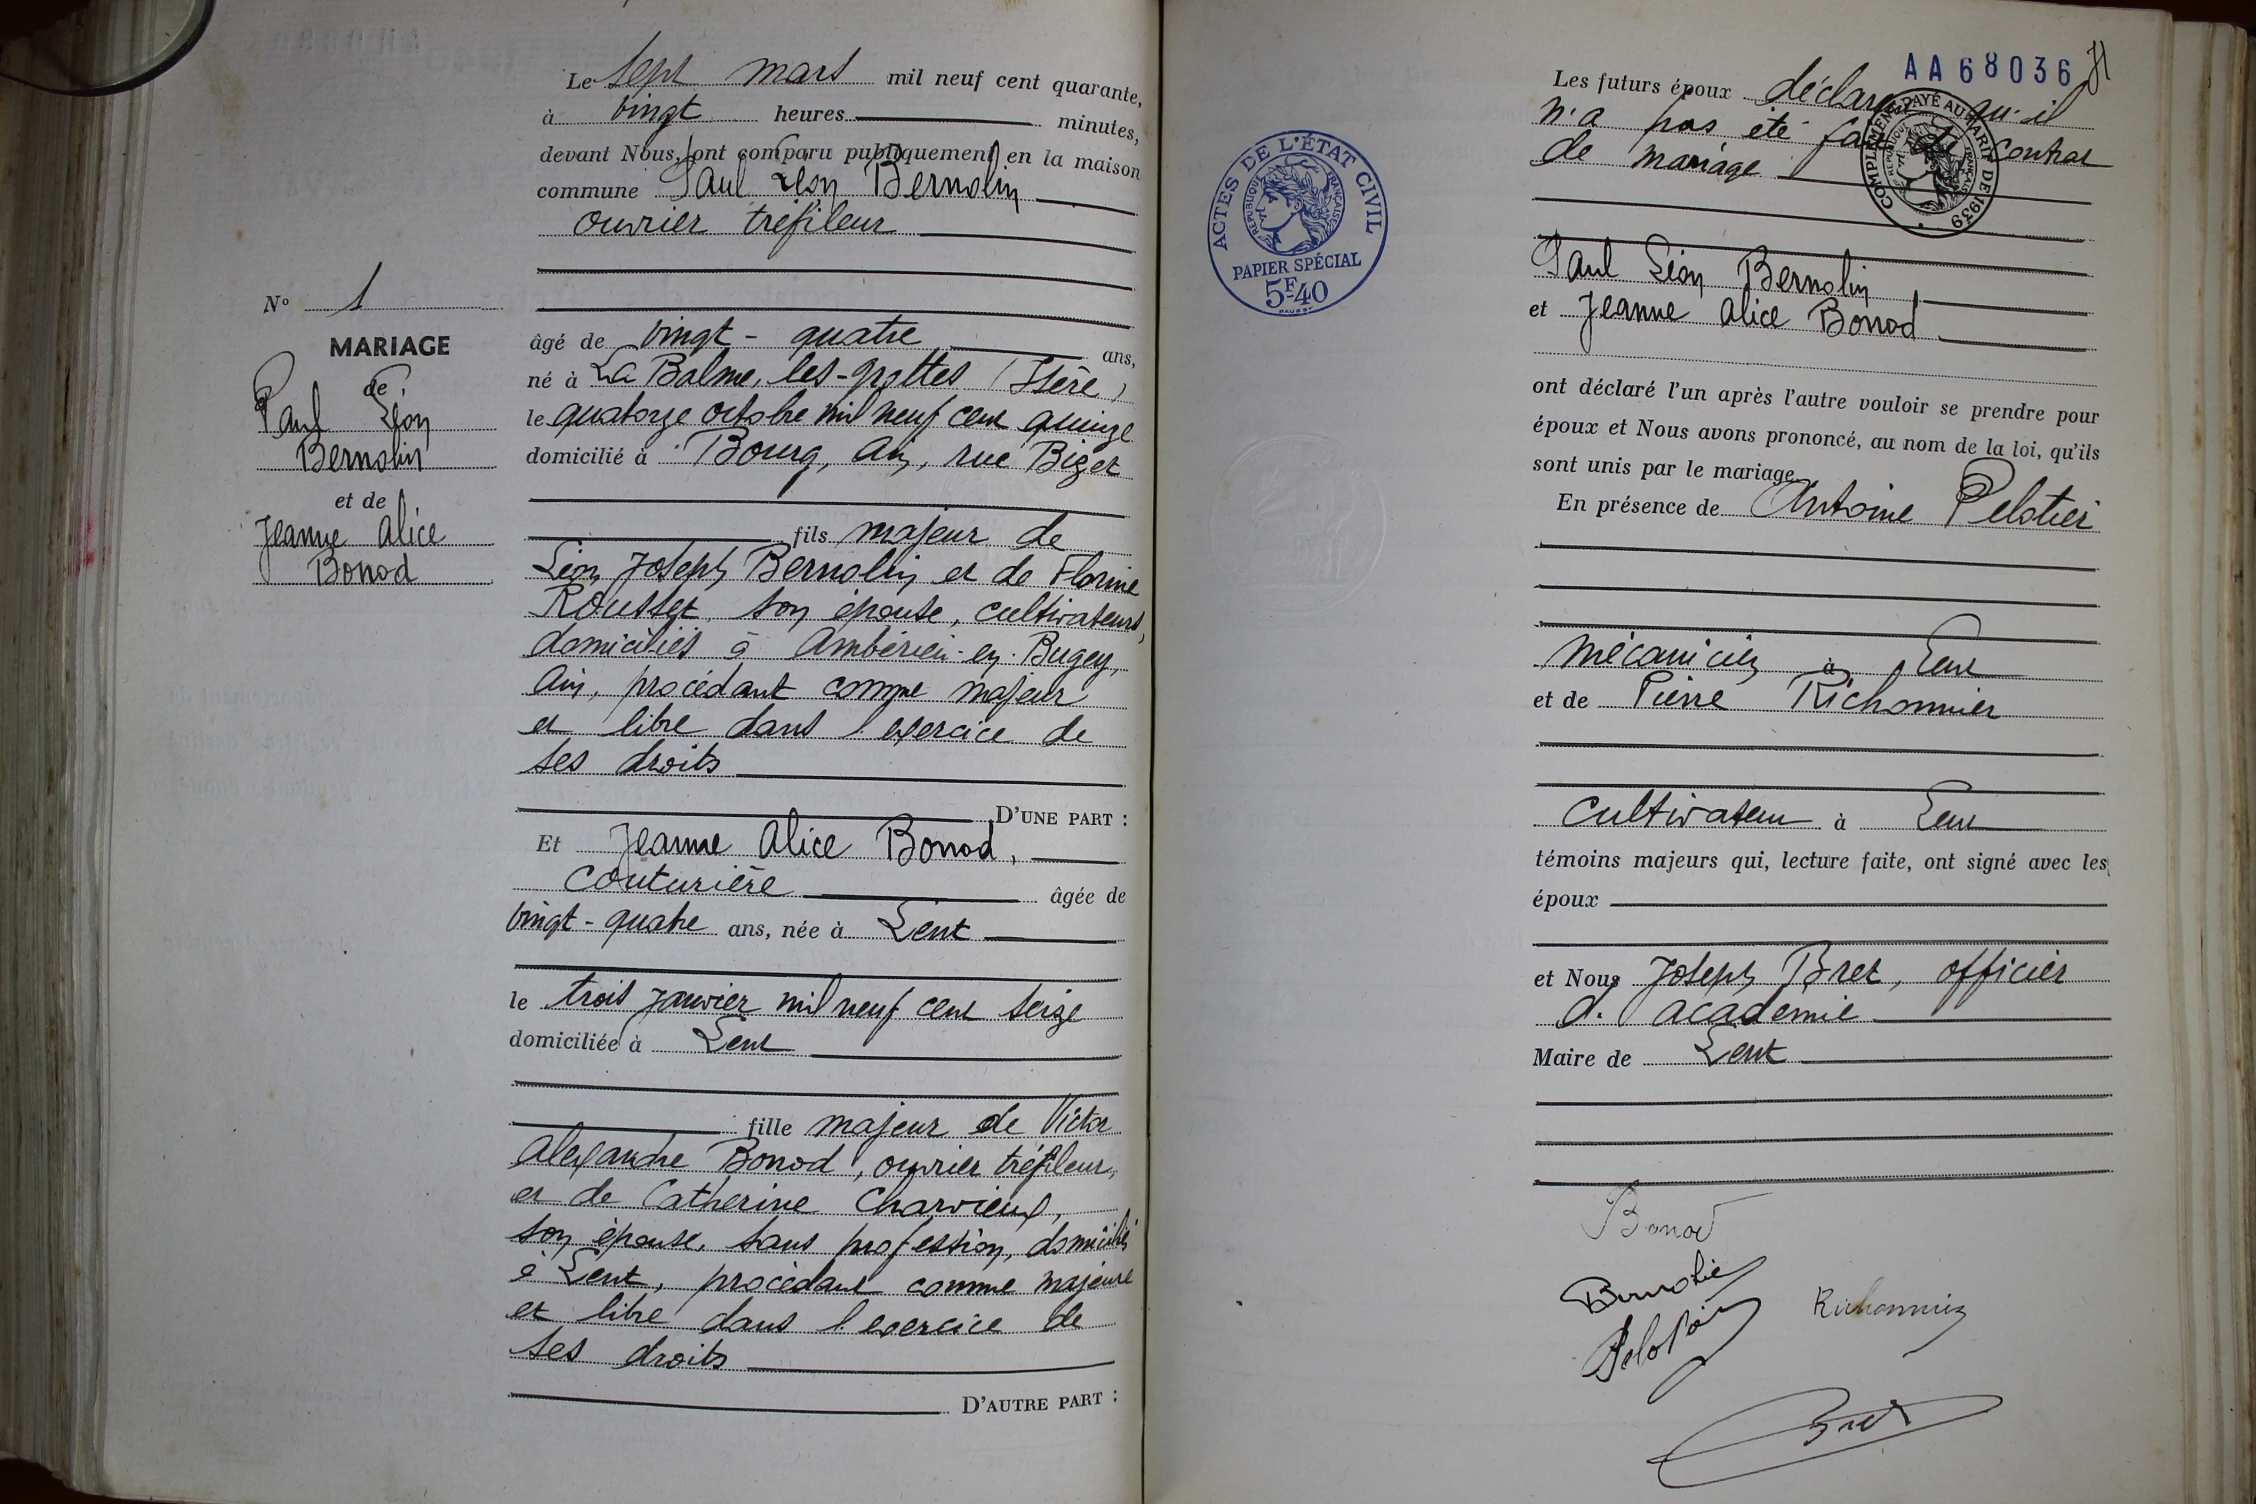 Le sept mars mil neuf cent quarante,
à vingt heures minutes,
devant Nous, ont comparu publiquement en la maison
commune Paul Léon Bernolin
ouvrier tréfileur
N° 1
MARIAGE
de
Paul Léon
Bernolin
et de
Jeanne Alice
Bonod
âgé de vingt-quatre ans,
né à La Balme-les-grottes (Isère)
le quatorze octobre mil neuf cent quinze
domicilié à Bourg, Ain, rue Bizet
fils majeur de
Léon Joseph Bernolin et de Florine
Rousset, son épouse, cultivateurs,
domiciliés à Ambérieu-en-Bugey,
Ain, procédant comme majeur
et libre dans l'exercice de
ses droits
D'UNE PART :
Et Jeanne Alice Bonod,
couturière âgée de
vingt-quatre ans, née à Lent
le trois janvier mil neuf cent seize
domiciliée à Lent
fille majeur de Victor
Alexandre Bonod, ouvrier tréfileur,
et de Catherine Charvieux,
son épouse, sans profession, domiciliés
à Lent, procédant comme majeure
et libre dans l'exercice de
ses droits
D'AUTRE PART :
AA68036
ACTES DE L'ÉTAT CIVIL
RÉPUBLIQUE FRANÇAISE
PAPIER SPÉCIAL
5F40
COMPLÉMENT PAYÉ AU TARIF DE 1939
RÉPUBLIQUE FRANÇAISE
Les futurs époux déclarent qu'il
n'a pas été fait de contrat
de mariage
Paul Léon Bernolin
et Jeanne Alice Bonod
ont déclaré l'un après l'autre vouloir se prendre pour
époux et Nous avons prononcé, au nom de la loi, qu'ils
sont unis par le mariage
En présence de Antoine Pelotier
mécanicien à Lent
et de Pierre Richonnier
cultivateur à Lent
témoins majeurs qui, lecture faite, ont signé avec les
époux
et Nous Joseph Bret, officier
d'académie
Maire de Lent
Bonod
Bernolin
Richonnier
Bret